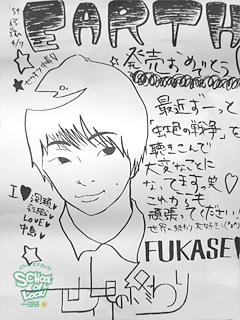 EARTH
発売おめでとう
最近ずーっと
「虹色の戦争」を
聴きこんで
大変なことに
なってますっ笑♡
これからも
頑張ってください！
世界の終わり大好き！
FUKASE
I♡
深瀬
LOVE
中島
世界の終わり
SCHOOL
OF
LOCK!